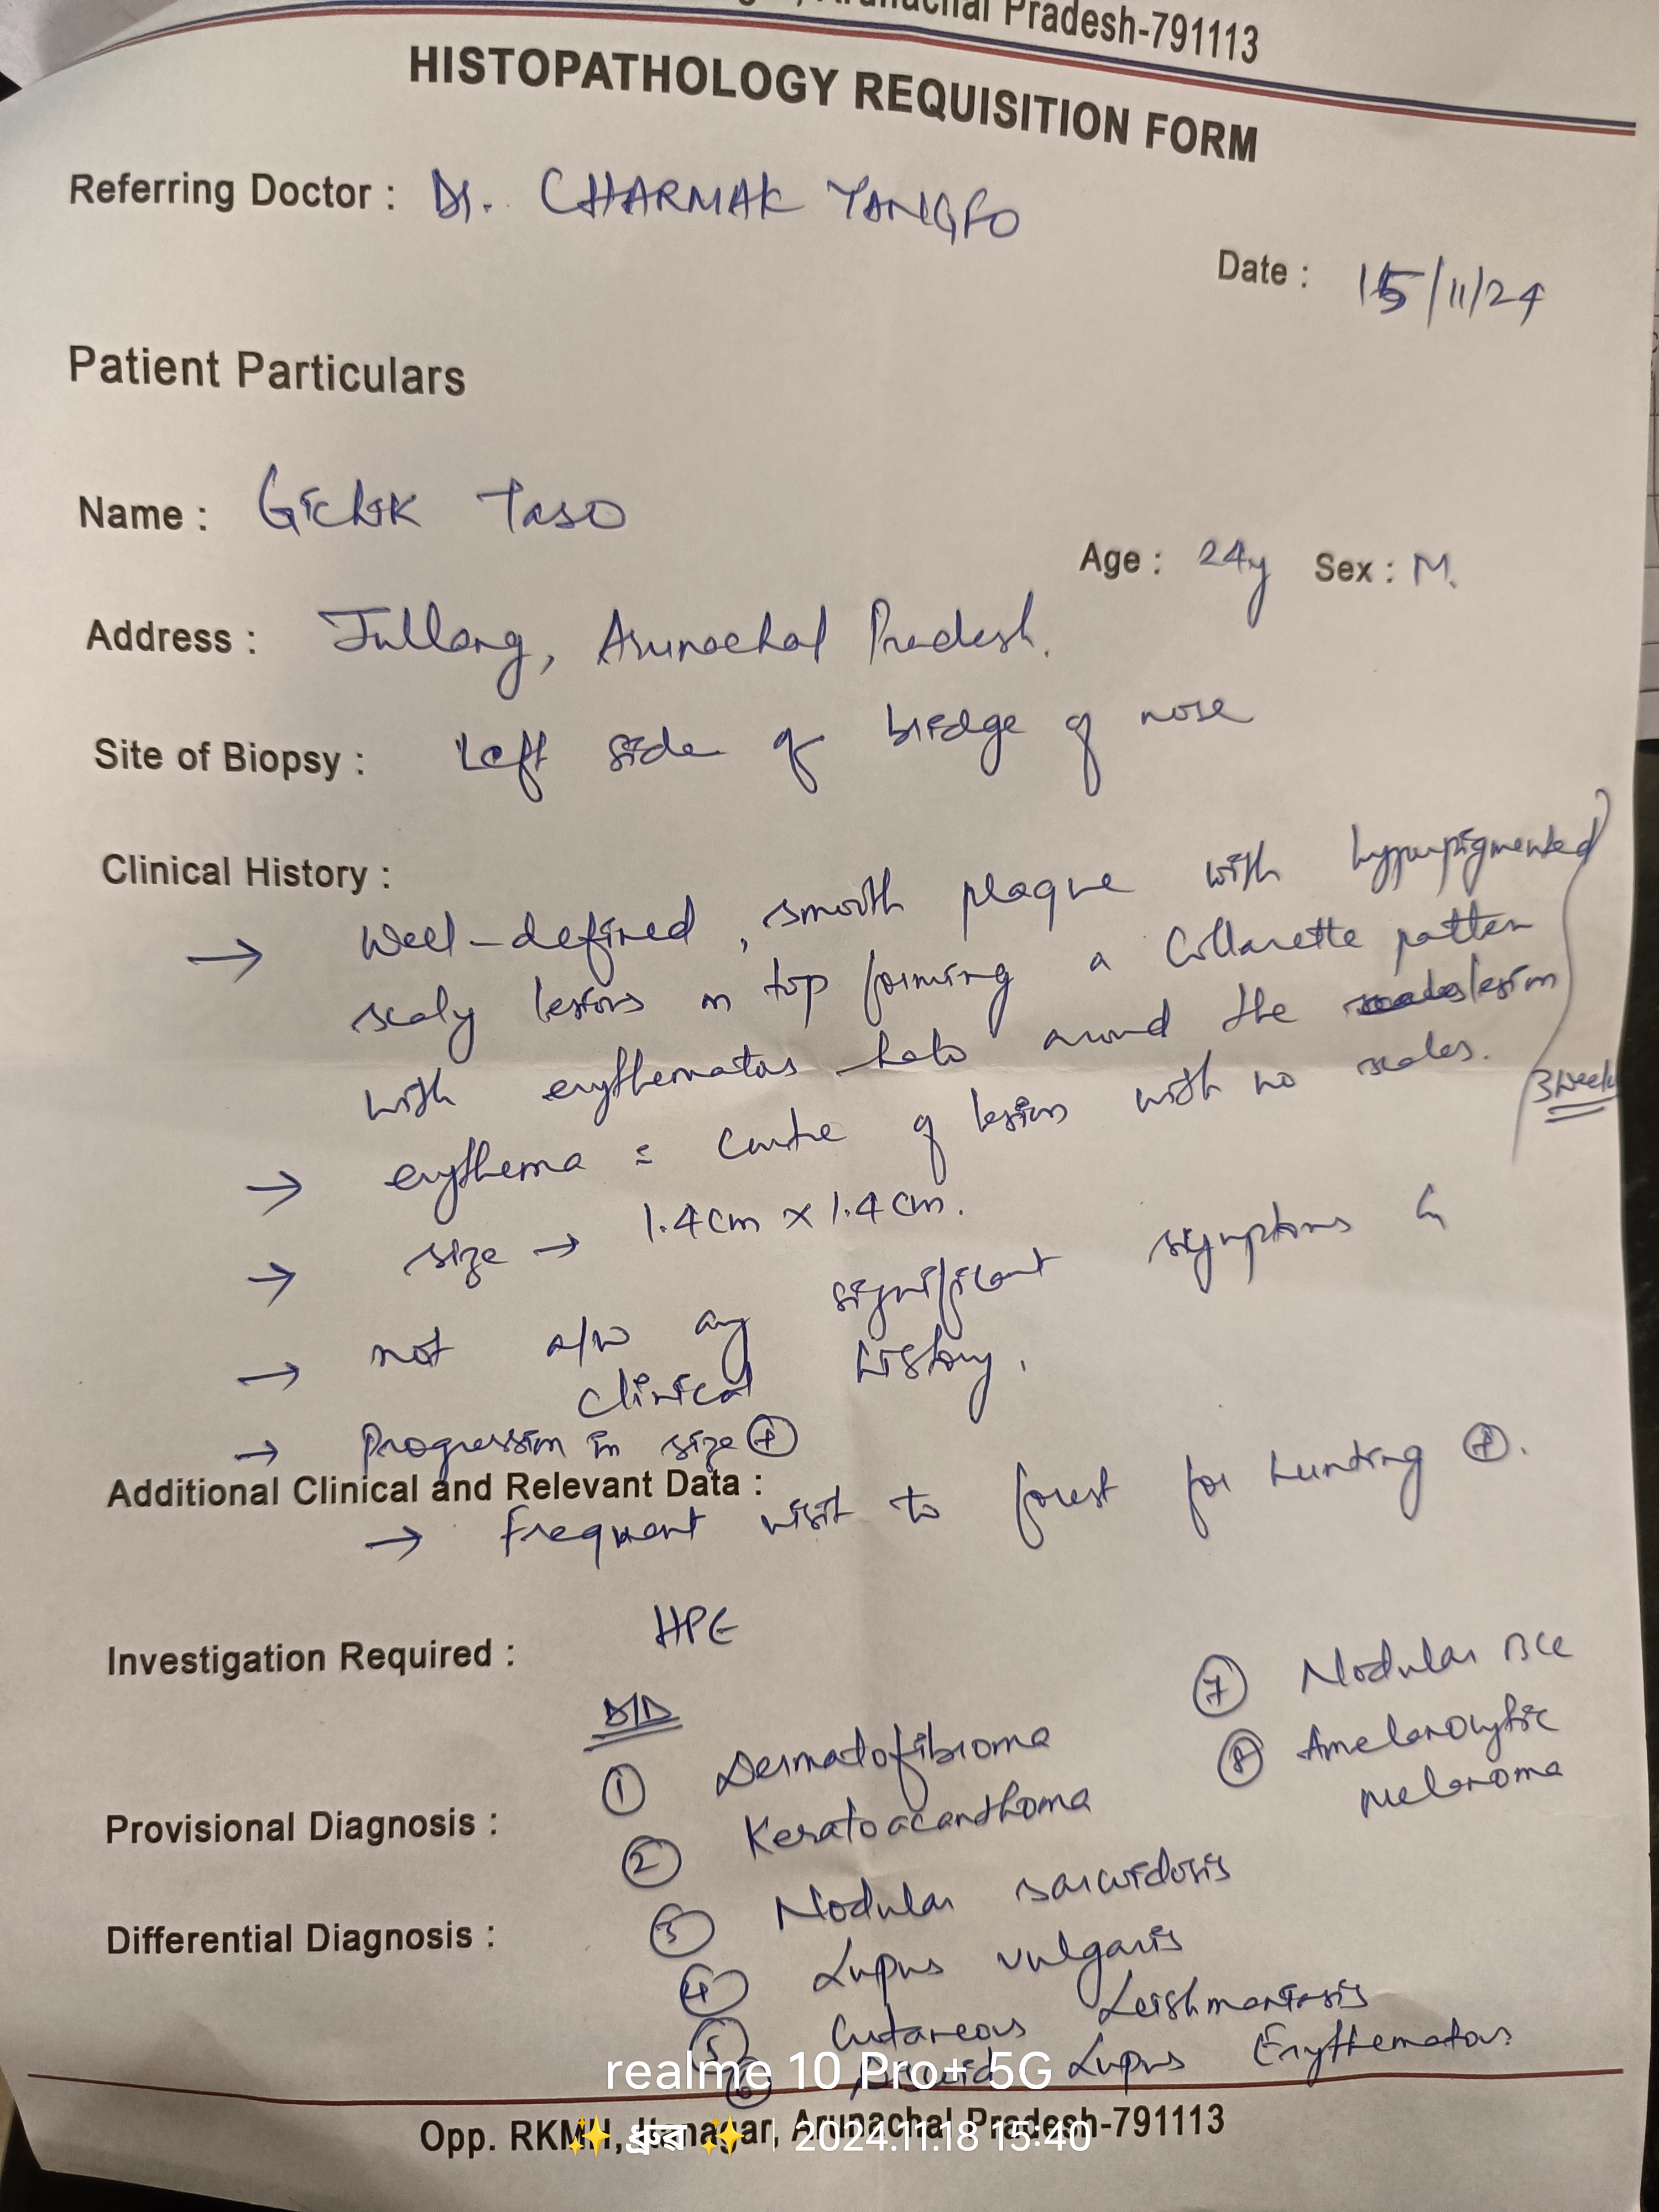 Arunachal Pradesh-791113
HISTOPATHOLOGY REQUISITION FORM
Referring Doctor : Dr. CHARMAK TANGFO
Date : 15/11/24
Patient Particulars
Name : Taso
Age : 24y Sex : M.
Address : Jullang, Arunachal Pradesh.
Site of Biopsy : Left side of bridge of nose
Clinical History :
→ Well-defined, smooth plaque with hyperpigmented
scaly lesions on top forming a Collarette patten
with erythematous halo around the lesion
3 week
→ erythema = centre of lesion with no scales.
→ size → 1.4cm x 1.4cm.
→ not a/w any significant symptoms
clinical history.
→ Progression in size +
Additional Clinical and Relevant Data :
→ Frequent visit to forest for hunting +.
Investigation Required : HPE
D/D
1 Dermatofibroma
Provisional Diagnosis :
2 Keratoacanthoma
3 Nodular sarcoidosis
Differential Diagnosis :
4 Lupus vulgaris
5 Cutaneous Leishmaniasis
6 Discoid Lupus Erythematous
7 Nodular BCC
8 Amelanocytic
melanoma
realme 10 Pro+ 5G
Opp. RKMH, Itanagar, Arunachal Pradesh-791113
✨ ✨ | 2024.11.18 15:40